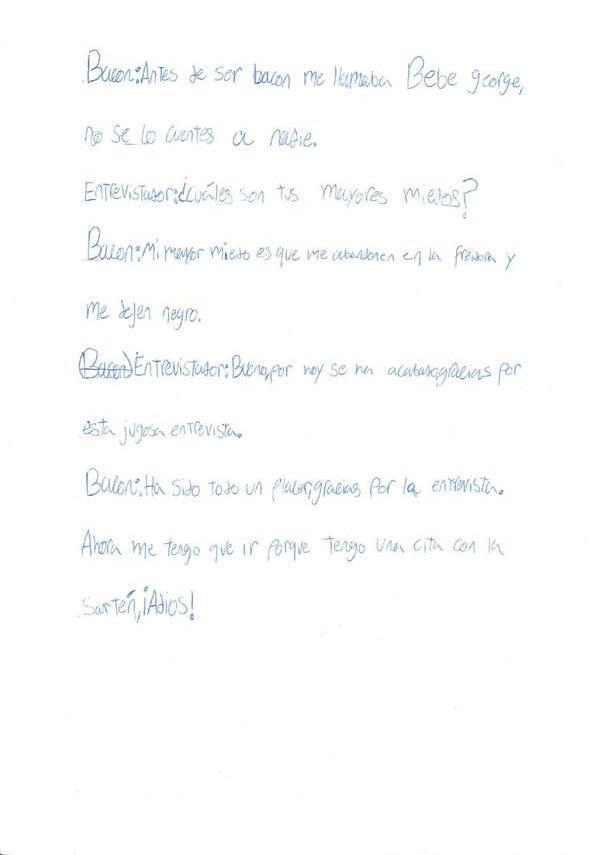 Bacon:Antes de ser bacon me llamaba Bebe george,
no se lo cuentes a nadie.
Entrevistador:¿Cuáles son tus mayores miedos?
Bacon:Mi mayor miedo es que me abandonen en la freidora y
me dejen negro.
(Bacon)Entrevistador:Bueno,por hoy se ha acabado,gracias por
esta jugosa entrevista.
Bacon:Ha sido todo un placer,gracias por la entrevista.
Ahora me tengo que ir porque tengo una cita con la
sartén,¡Adios!